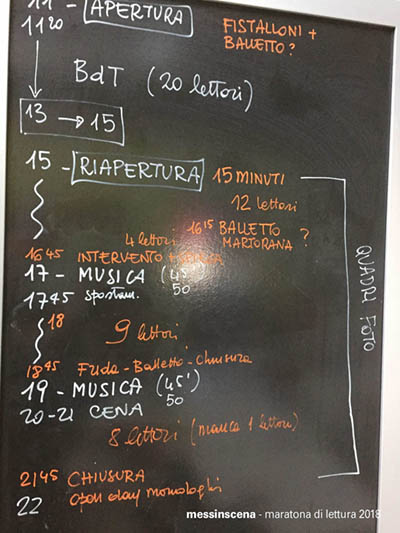 11 - APERTURA
11 20
FISTALLONI +
BALLETTO ?
BdT (20 lettori)
13 → 15
15 - RIAPERTURA
15 MINUTI
12 lettori
4 lettori
16 15 BALLETTO
MARTORANA ?
16 45 INTERVENTO +
17 - MUSICA (45'
50
17 45 spostam.
18
9 lettori
18 45 Fuda - Balletto - Chiusura
19 - MUSICA (45')
50
20-21 CENA
8 lettori (manca 1 lettori)
21 45 CHIUSURA
22 open day monologhi
QUADRI FOTO
messinscena - maratona di lettura 2018